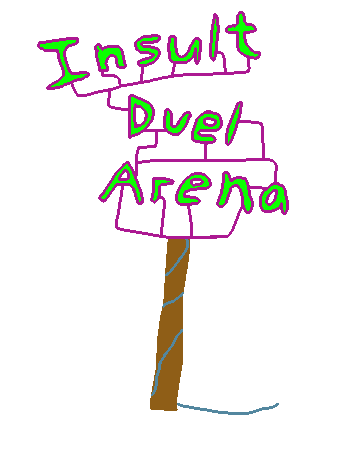 Insult
Duel
Arena